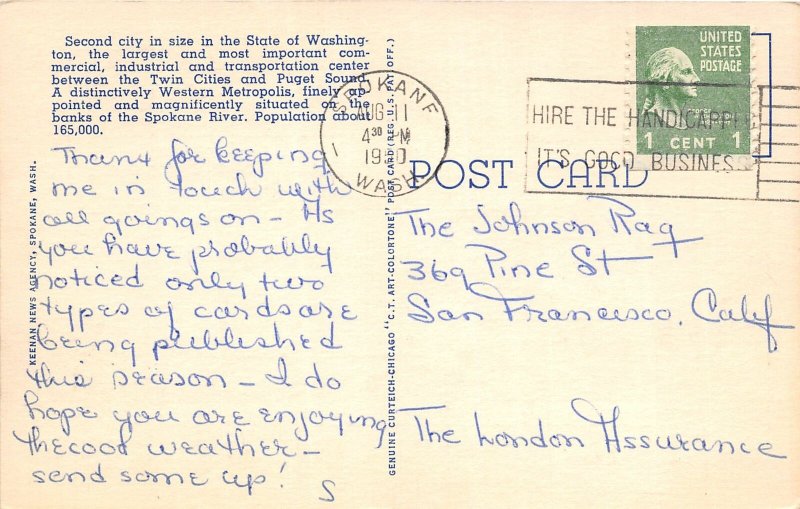 Second city in size in the State of Washing-
ton, the largest and most important com-
mercial, industrial and transportation center
between the Twin Cities and Puget Sound.
A distinctively Western Metropolis, finely ap-
pointed and magnificently situated on the
banks of the Spokane River. Population about
165,000.
Thanx for keeping
me in touch with
all goings on - As
you have probably
noticed only two
types of cards are
being published
this season - I do
hope you are enjoying
the cool weather -
send some up!
S
KEENAN NEWS AGENCY, SPOKANE, WASH.
GENUINE CURTEICH-CHICAGO "C.T. ART-COLORTONE" POST CARD (REG. U.S. PAT. OFF.)
SPOKANE
AUG 11
4 30 PM
WASH.
HIRE THE HANDICAPPED
IT'S GOOD BUSINESS
UNITED
STATES
POSTAGE
1 CENT 1
POST CARD
The Johnson Rag
369 Pine St
San Francisco, Calif
The London Assurance